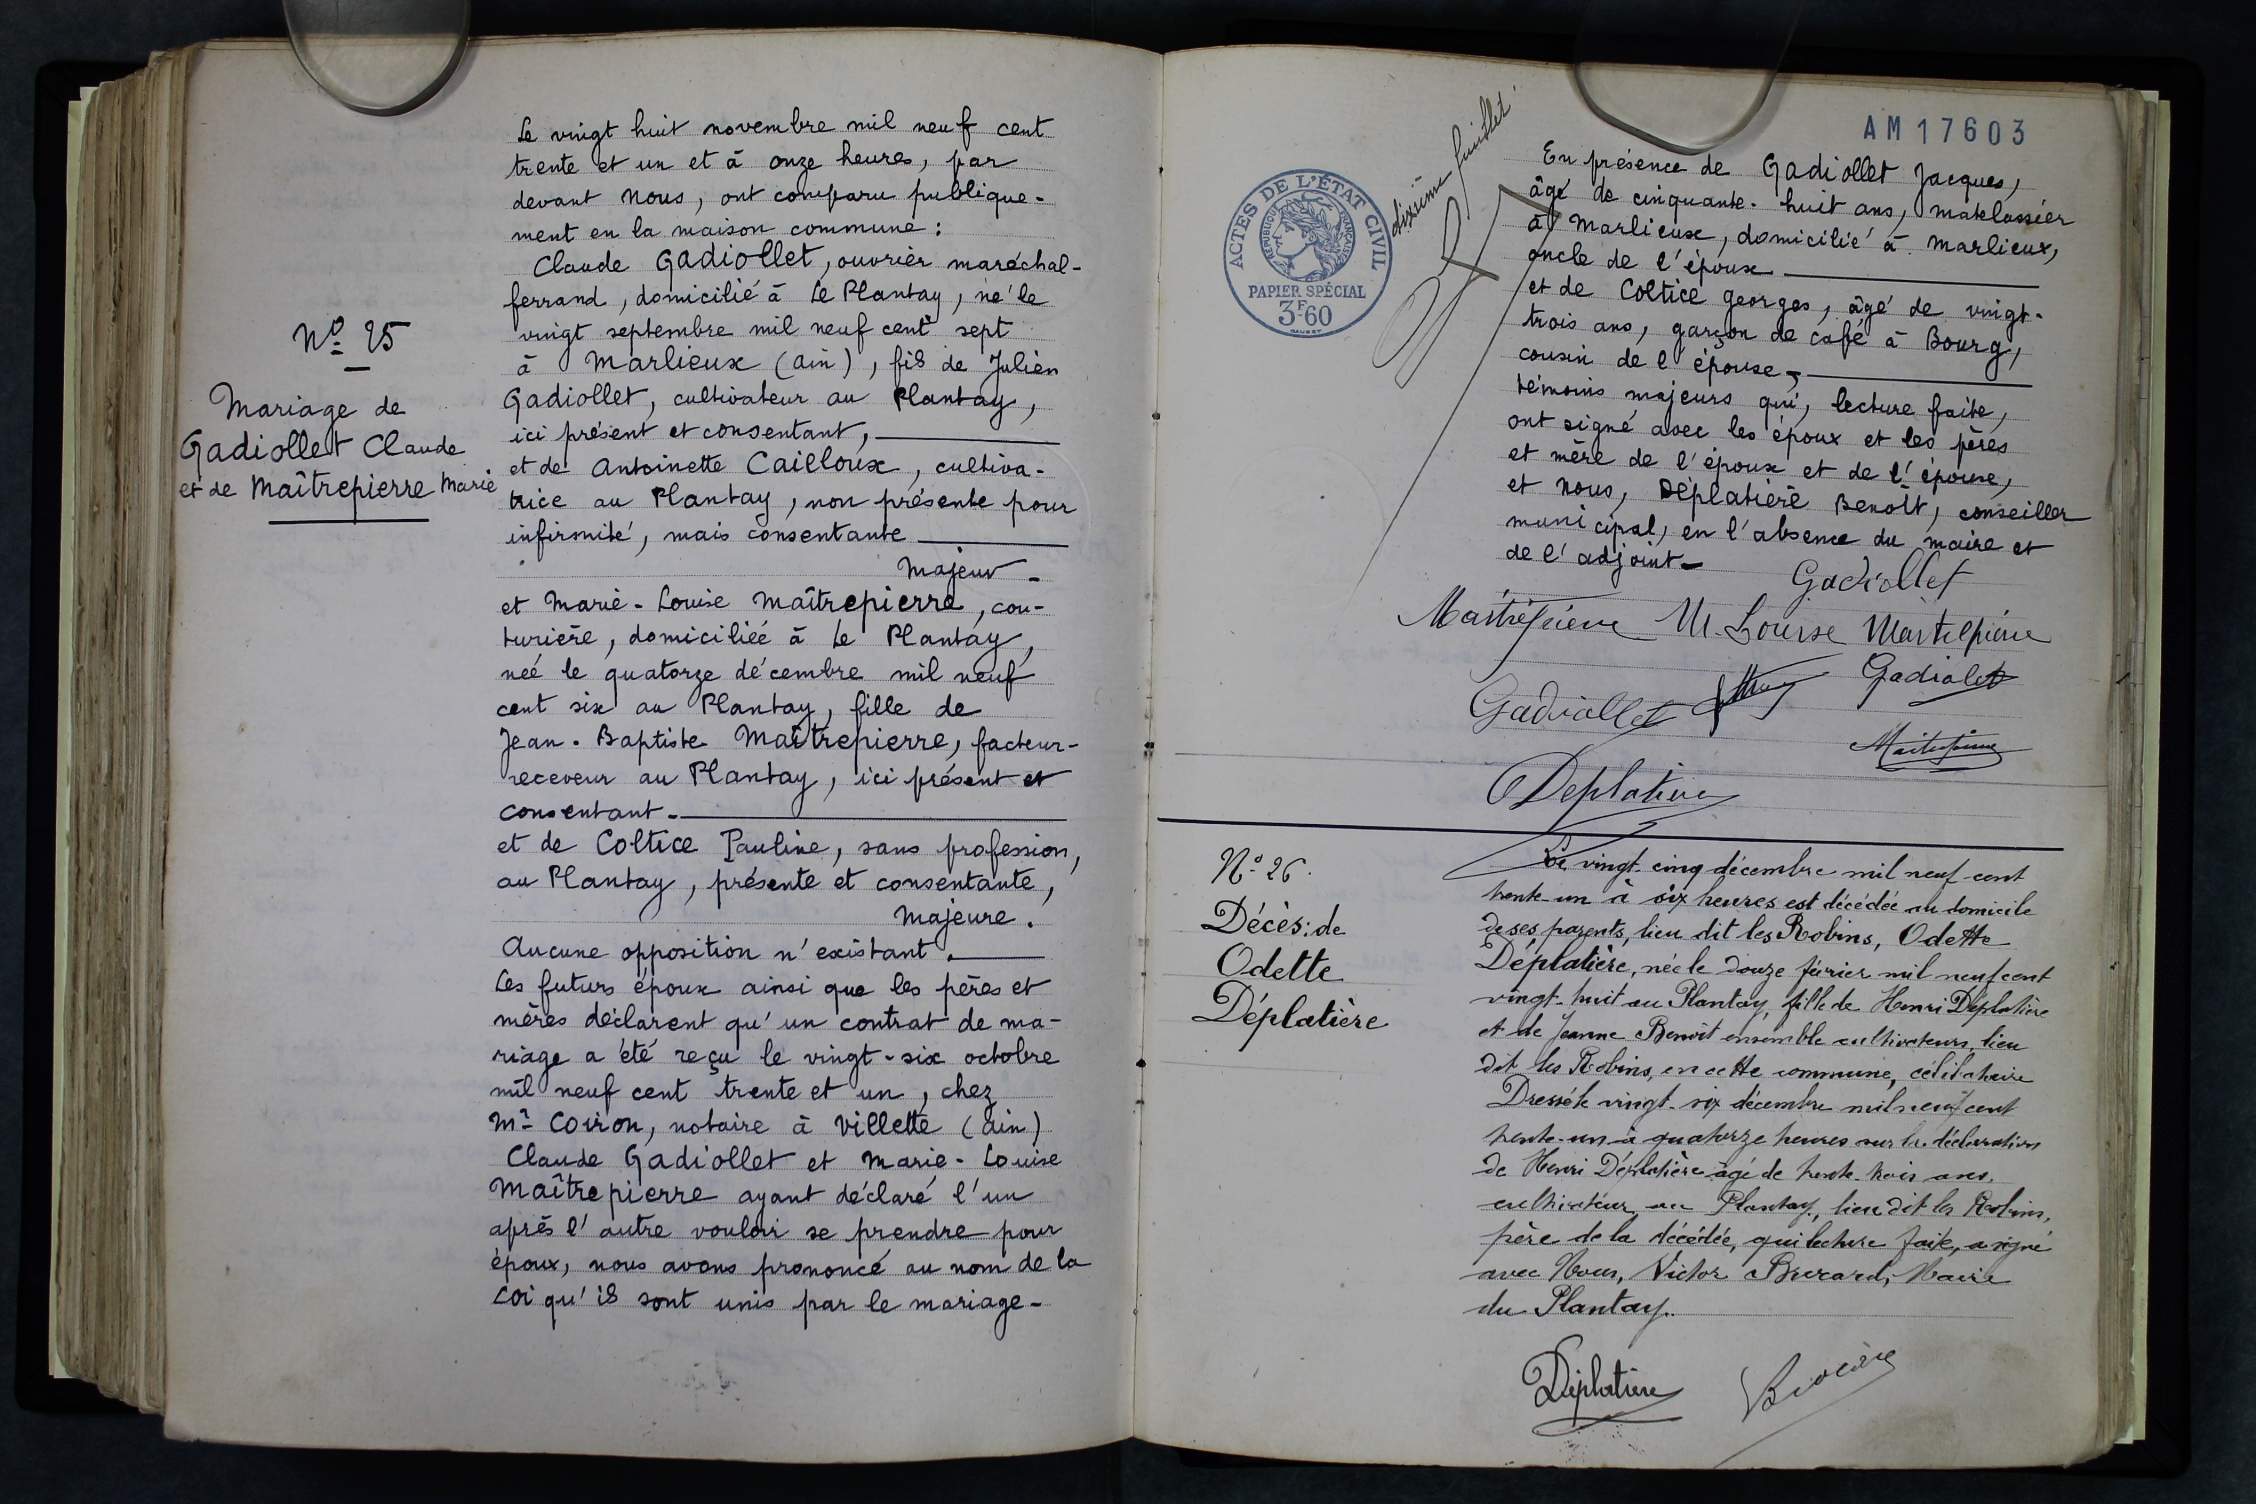 Nº 25
Mariage de
Gadiollet Claude
et de Maîtrepierre Marie
Le vingt huit novembre mil neuf cent
trente et un et à onze heures, par
devant Nous, ont comparu publique-
ment en la maison commune :
Claude Gadiollet, ouvrier maréchal-
ferrand, domicilié à Le Plantay, né le
vingt septembre mil neuf cent sept
à Marlieux (ain), fils de Julien
Gadiollet, cultivateur au Plantay,
ici présent et consentant,
et de Antoinette Cailloux, cultiva-
trice au Plantay, non présente pour
infirmité, mais consentante
Majeur -
et Marie-Louise Maîtrepierre, cou-
turière, domiciliée à Le Plantay,
née le quatorze décembre mil neuf
cent six au Plantay, fille de
Jean-Baptiste Maîtrepierre, facteur-
receveur au Plantay, ici présent et
consentant -
et de Coltice Pauline, sans profession,
au Plantay, présente et consentante,
Majeure.
Aucune opposition n'existant.
Les futurs époux ainsi que les pères et
mères déclarent qu'un contrat de ma-
riage a été reçu le vingt-six octobre
mil neuf cent trente et un, chez
Mr Coiron, notaire à Villette (ain)
Claude Gadiollet et Marie-Louise
Maîtrepierre ayant déclaré l'un
après l'autre vouloir se prendre pour
époux, nous avons prononcé au nom de la
Loi qu'ils sont unis par le mariage -
AM 17603
dixième feuillet.
ACTES DE L'ÉTAT CIVIL
RÉPUBLIQUE FRANÇAISE
PAPIER SPÉCIAL
3F60
En présence de Gadiollet Jacques,
âgé de cinquante-huit ans, matelassier
à Marlieux, domicilié à Marlieux,
oncle de l'époux
et de Coltice Georges, âgé de vingt-
trois ans, garçon de café à Bourg,
cousin de l'épouse,
témoins majeurs qui, lecture faite,
ont signé avec les époux et les pères
et mère de l'époux et de l'épouse,
et Nous, Déplatière Benoît, conseiller
municipal, en l'absence du maire et
de l'adjoint -
Gadiollet
Maîtrepierre M. Louise Maîtrepierre
Gadiollet Gadiolet
Maîtrepierre
Deplatière
Nº 26.
Décès: de
Odette
Déplatière
Le vingt-cinq décembre mil neuf cent
trente-un à six heures est décédée au domicile
de ses parents, lieu dit les Robins, Odette
Déplatière, née le douze février mil neuf cent
vingt-huit au Plantay, fille de Henri Déplatière
et de Jeanne Benoît ensemble cultivateurs, lieu
dit les Robins, en cette commune, célibataire
Dressé le vingt-six décembre mil neuf cent
trente-un à quatorze heures sur la déclaration
de Henri Déplatière âgé de trente-trois ans,
cultivateur, au Plantay, lieu dit les Robins,
père de la décédée, qui lecture faite, a signé
avec Nous, Victor Maire
du Plantay.
Déplatière